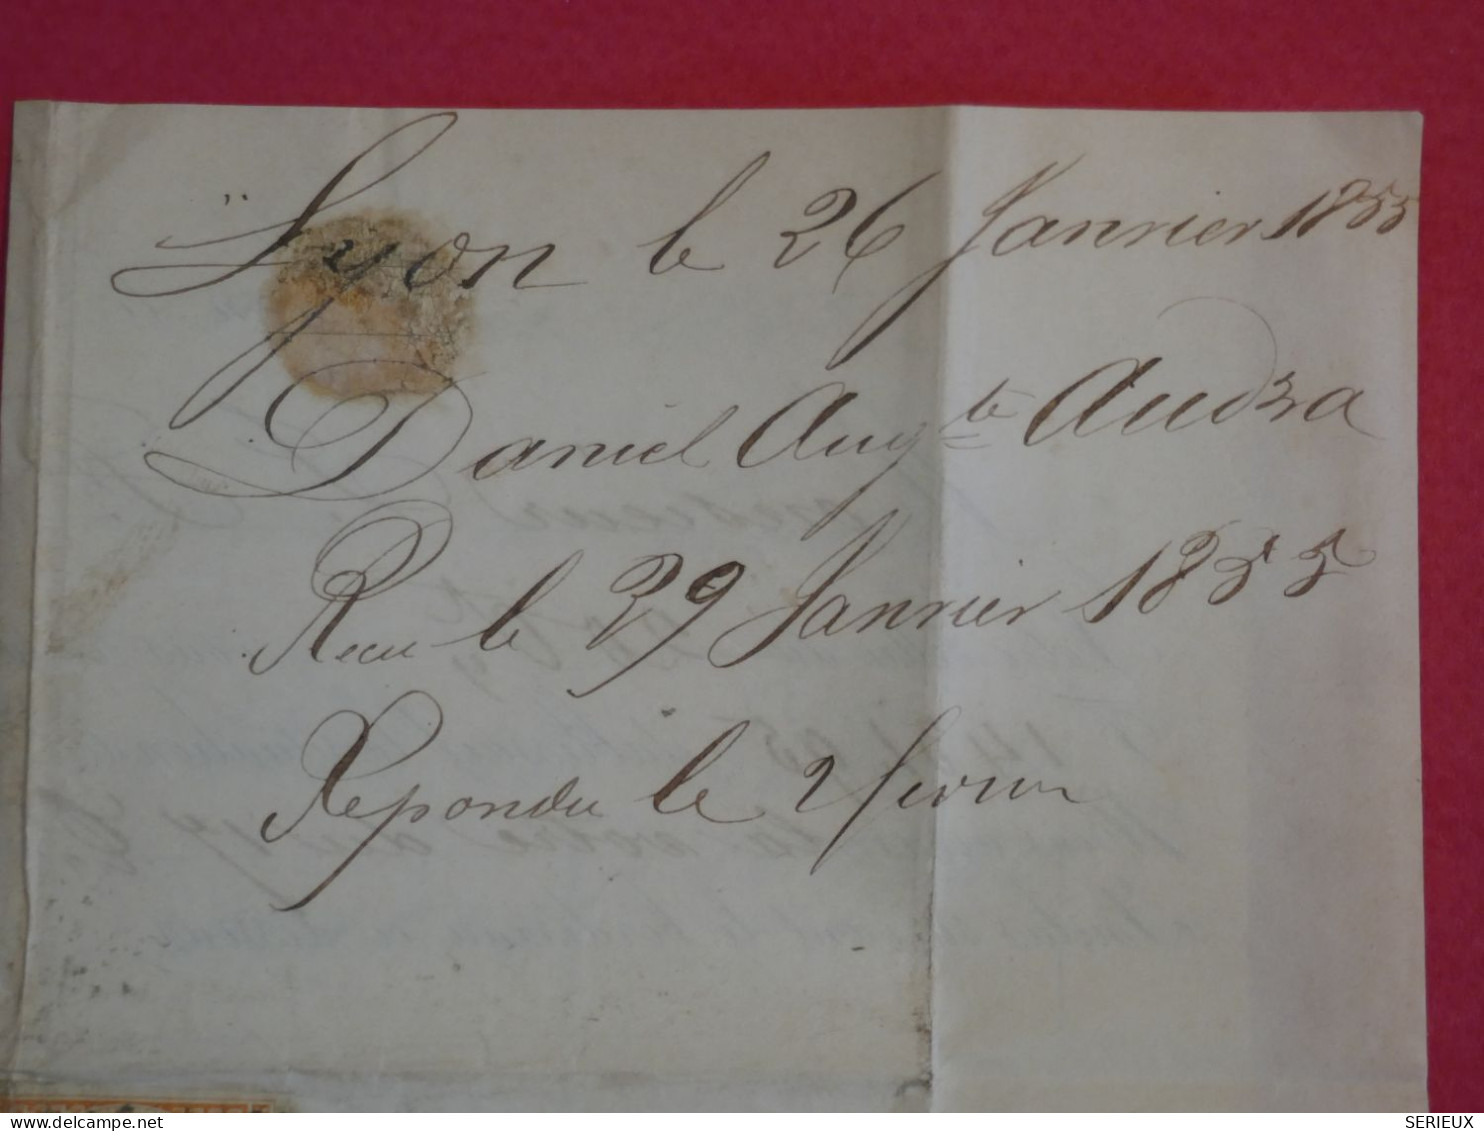 Lyon le 26 Janvier 1855
Daniel Aug.te Audra
Recu le 29 Janvier 1855
Repondu le 2 fevrier
delcampe.net
SERIEUX